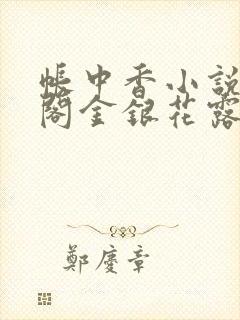 帳中香小說
閣金銀花露
鄭慶章